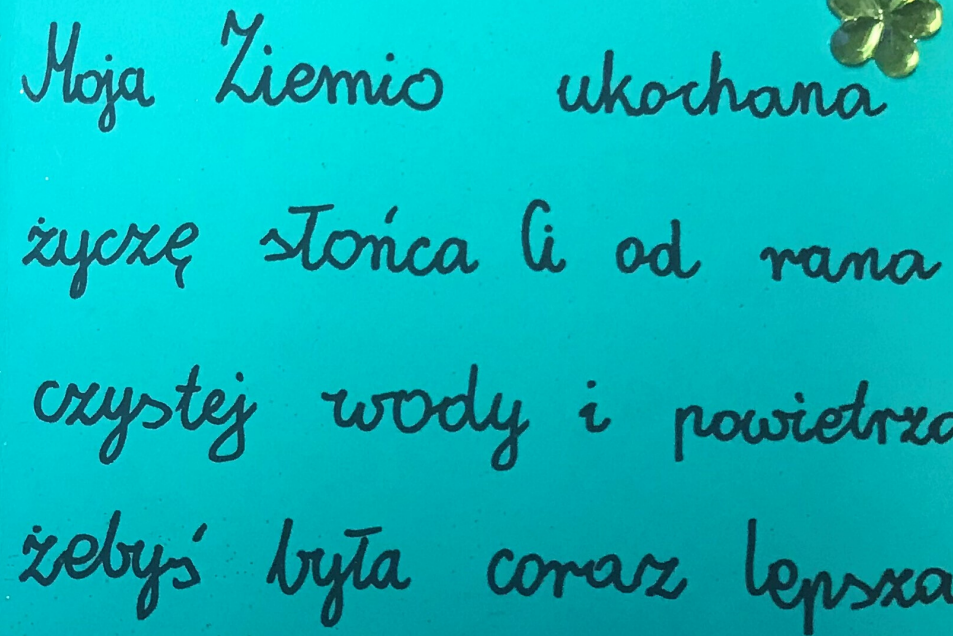 Moja Ziemio ukochana
życzę słońca Ci od rana
czystej wody i powietrza
żebyś była coraz lepsza